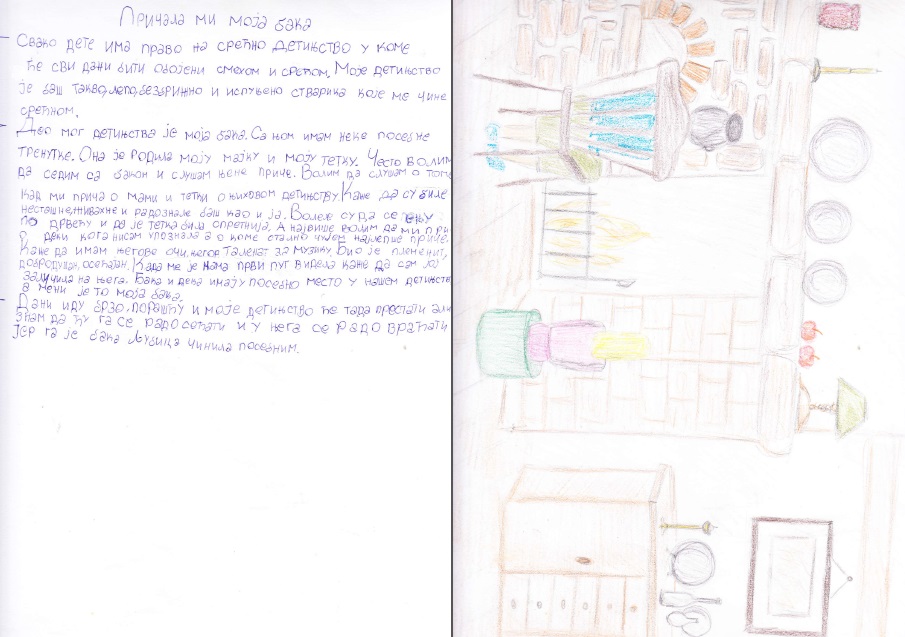 Причала ми моја бака
Свако дете има право на срећно детињство у коме
ће сви дани бити обојени смехом и срећом. Моје детињство
је баш такво, лепо, безбрижно и испуњено стварима које ме чине
срећном.
Део мог детињства је моја бака. Са њом имам неке посебне
тренутке. Она је родила моју мајку и моју тетку. Често волим
да седим са баком и слушам њене приче. Волим да слушам о томе
кад ми прича о мами и тетки о њиховом детињству. Каже да су биле
несташне, живахне и радознале баш као и ја. Волеле су да се пењу
по дрвећу и да је тетка била спретнија. А највише волим да ми при
о деки кога нисам упознала а о коме стално чујем најлепше приче.
Каже да имам његове очи, његов таленат за музику. Био је племенит,
добродушан, осећајан. Када ме је нана први пут видела каже да сам јој
заличила на њега. Бака и дека имају посебно место у нашем детињств
а мени је то моја бака.
Дани иду брзо, порашћу и моје детињство ће тада престати али
знам да ћу га се радо сећати и у њега се радо враћати
јер га је бака Љубица чинила посебним.